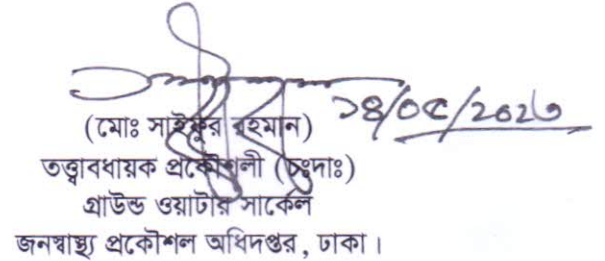 ১৪/০৫/২০২৩
(মোঃ সাইফুর রহমান)
তত্ত্বাবধায়ক প্রকৌশলী (চঃদাঃ)
গ্রাউন্ড ওয়াটার সার্কেল
জনস্বাস্থ্য প্রকৌশল অধিদপ্তর, ঢাকা।